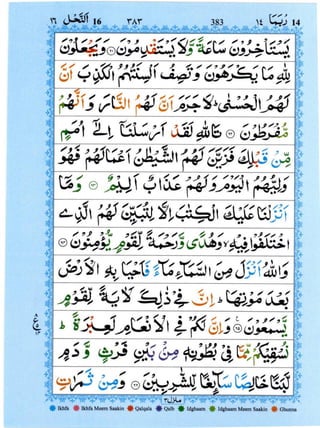 النَّحْل ١٦ 16 ٣٨٣ 383 رُبَمَا ١٤ 14
يَسْتَاْخِرُوْنَ سَاعَةً وَّلَا يَسْتَقْدِمُوْنَ ﴿۶۱﴾ وَيَجْعَلُوْنَ
لِلّٰهِ مَا يَكْرَهُوْنَ وَتَصِفُ اَلْسِنَتُهُمُ الْكَذِبَ اَنَّ
لَهُمُ الْحُسْنٰىؕ لَا جَرَمَ اَنَّ لَهُمُ النَّارَ وَاَنَّهُمْ
مُّفْرَطُوْنَ ﴿۶۲﴾ تَاللّٰهِ لَقَدْ اَرْسَلْنَاۤ اِلٰٓى اُمَمٍ
مِّنْ قَبْلِكَ فَزَيَّنَ لَهُمُ الشَّيْطٰنُ اَعْمَالَهُمْ فَهُوَ
وَلِيُّهُمُ الْيَوْمَ وَلَهُمْ عَذَابٌ اَلِيْمٌ ﴿۶۳﴾ وَمَاۤ
اَنْزَلْنَا عَلَيْكَ الْكِتٰبَ اِلَّا لِتُبَيِّنَ لَهُمُ الَّذِى
اخْتَلَفُوْا فِيْهِۙ وَهُدًى وَّرَحْمَةً لِّقَوْمٍ يُّؤْمِنُوْنَ ﴿۶۴﴾
وَاللّٰهُ اَنْزَلَ مِنَ السَّمَآءِ مَآءً فَاَحْيَا بِهِ الْاَرْضَ
بَعْدَ مَوْتِهَاؕ اِنَّ فِىْ ذٰلِكَ لَاٰيَةً لِّقَوْمٍ
يَّسْمَعُوْنَ ﴿۶۵﴾ وَاِنَّ لَكُمْ فِى الْاَنْعَامِ لَعِبْرَةًؕ
نُسْقِيْكُمْ مِّمَّا فِىْ بُطُوْنِهٖ مِنْۢ بَيْنِ فَرْثٍ وَّدَمٍ
لَّبَنًا خَالِصًا سَآٮِٕغًا لِّلشّٰرِبِيْنَ ﴿۶۶﴾ وَمِنْ ثَمَرٰتِ
منزل ٣
Ikhfa Ikhfa Meem Saakin Qalqala Qalb Idghaam Idghaam Meem Saakin Ghunna